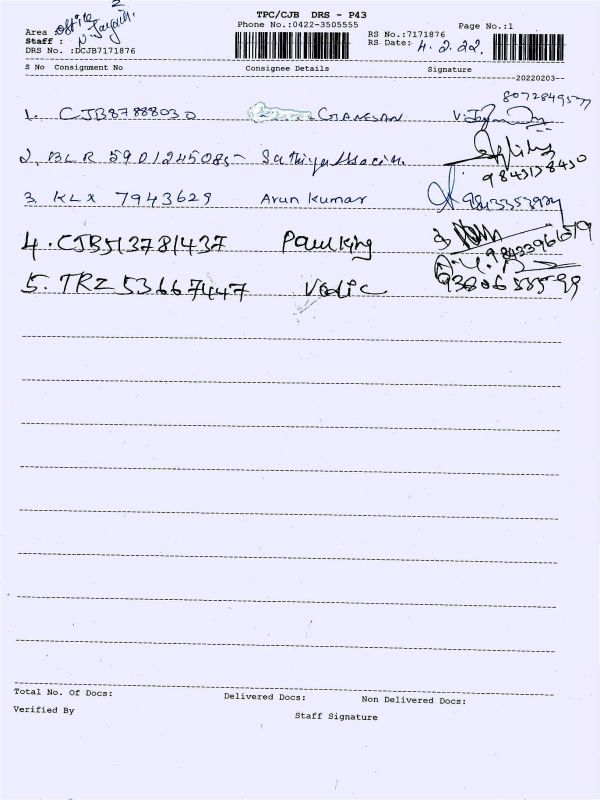 2
TPC/CJB DRS - P43
Phone No.:0422-3505555
Page No.:1
Area : office
Staff :
DRS No. :DCJB7171876
RS No.:7171876
RS Date: 4.2.22.
S No Consignment No Consignee Details Signature
20220203
8072849577
1. CJB8788803D GANESAN
2. BLR 5901245085
9843138430
3. KLX 7943629 Arun kumar
4. CJB513781437 Paul King
5. TRZ 536667447 Vedic
Total No. Of Docs: Delivered Docs: Non Delivered Docs:
Verified By Staff Signature